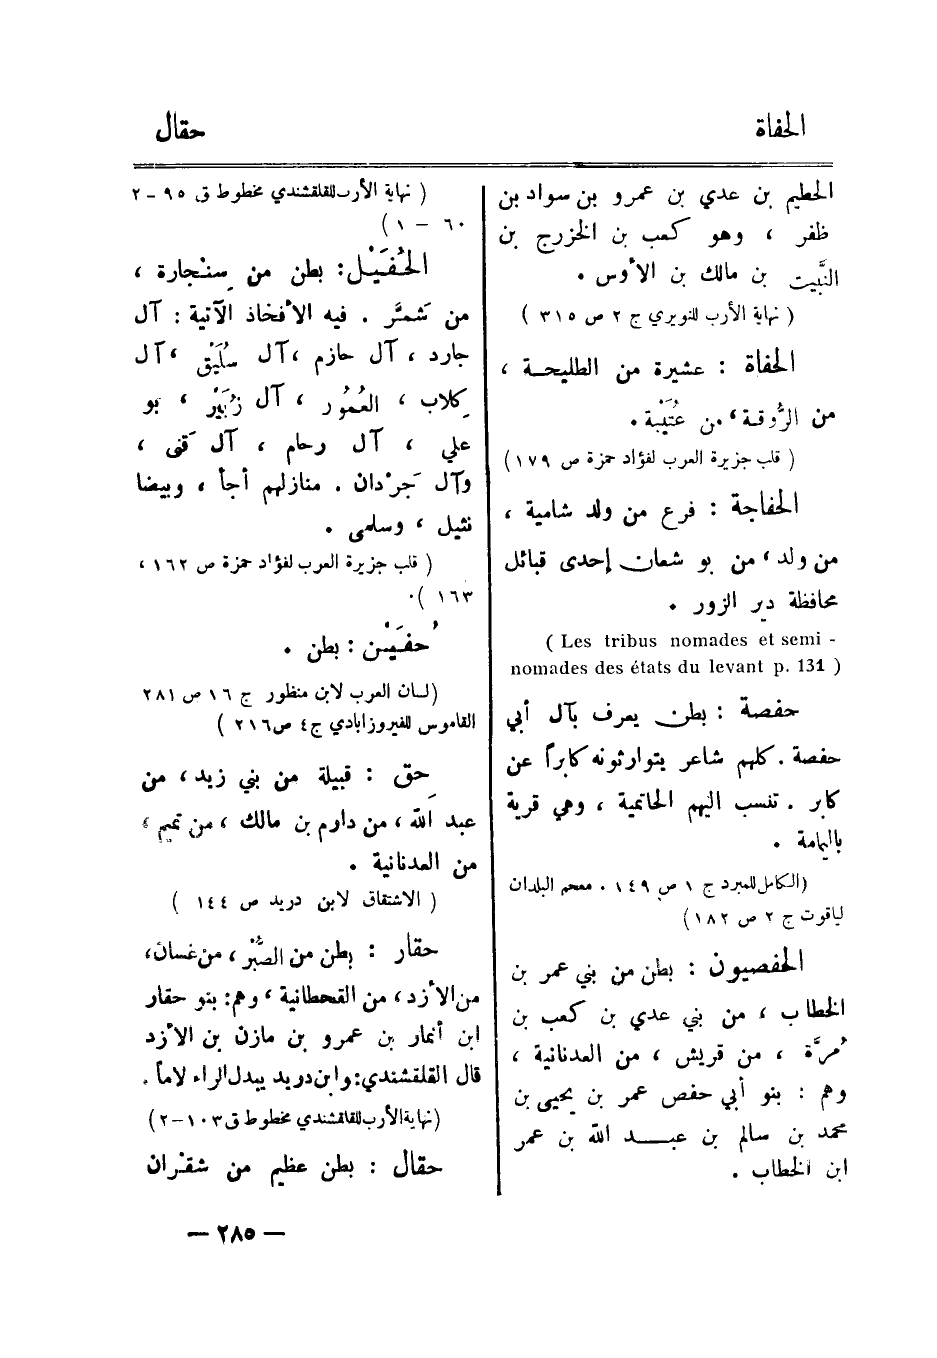 الحفاة
حقال
الحطيم بن عدي بن عمرو بن سواد بن
ظفر ، وهو كعب بن الخزرج بن
النَّبيت بن مالك بن الأوس .
( نهاية الأرب للنويري ج ٢ ص ٣١٥ )
الحفاة : عشيرة من الطليحة ،
من الرُّوقة ، من عُتَيْبة .
( قلب جزيرة العرب لفؤاد حمزة ص ١٧٩ )
الحفاجة : فرع من ولد شامية ،
من ولد ، من بو شعان إحدى قبائل
محافظة دير الزور .
( Les tribus nomades et semi -
nomades des états du levant p. 131 )
حفصة : بطن يعرف بآل أبي
حفصة . كلهم شاعر يتوارثونه كابراً عن
كابر . تنسب اليهم الحاتمية ، وهي قرية
باليمامة .
( الكامل للمبرد ج ١ ص ١٤٩ . معجم البلدان
لياقوت ج ٢ ص ١٨٢ )
الحفصيون : بطن من بني عمر بن
الخطاب ، من بني عدي بن كعب بن
مُرَّة ، من قريش ، من العدنانية ،
وهم : بنو أبي حفص عمر بن يحيى بن
محمد بن سالم بن عبد الله بن عمر
ابن الخطاب .
( نهاية الأرب للقلقشندي مخطوط ق ٩٥ - ٢
٦٠ - ١ )
الحُفَيْل : بطن من سِنْجارة ،
من شَمَّر . فيه الأفخاذ الآتية : آل
جارد ، آل حازم ، آل سُلَيْق ، آل
كِلاب ، العُمُور ، آل زُبَيْر ، بو
علي ، آل رحام ، آل قَنى ،
وآل جَرْدان . منازلهم أجأ ، وبيضا
نثيل ، وسلمى .
( قلب جزيرة العرب لفؤاد حمزة ص ١٦٢ ،
١٦٣ ) .
حُفَيْن : بطن .
( لسان العرب لابن منظور ج ١٦ ص ٢٨١
القاموس للفيروزابادي ج ٤ ص ٢١٦ )
حِق : قبيلة من بني زيد ، من
عبد الله ، من دارم بن مالك ، من تميم ،
من العدنانية .
( الاشتقاق لابن دريد ص ١٤٤ )
حقار : بطن من الصَّبْر ، من غسان ،
من الأزد ، من القحطانية ، وهم : بنو حقار
ابن أنمار بن عمرو بن مازن بن الأزد
قال القلقشندي : وابن دريد يبدل الراء لاماً .
( نهاية الأرب للقلقشندي مخطوط ق ١٠٣ - ٢ )
حقال : بطن عظيم من شقران
— ٢٨٥ —